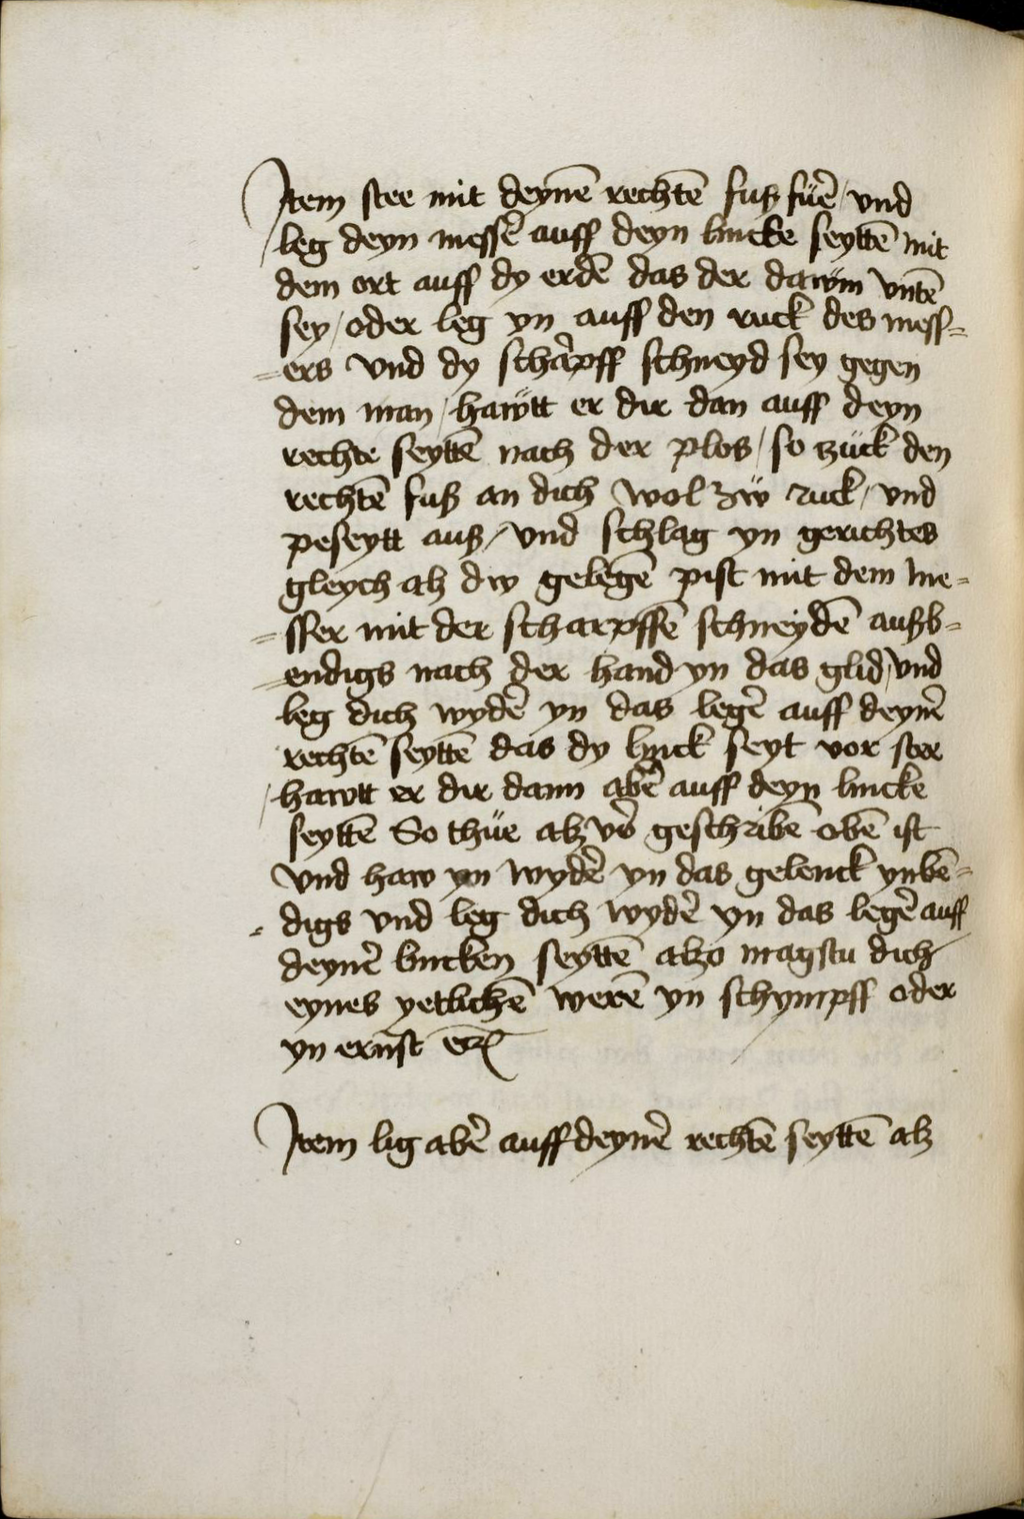 Item stee mit deynē rechtē fuß fuͤē / vnd
leg deyn messē auff deyn lincke seyttē mit
dem ort auff dy erdē das der dawͦm vntē
sey / oder leg yn auff den ruck des mess=
=ers vnd dy schàrpff schneyd sey gegen
dem man / hawͦtt er dir dan auff deyn
rechte seyttē nach der plos / so zuͤck den
rechtē fuß an dich wol zẅ ruck / vnd
peseytt auß / vnd schlag yn gerichtes
gleych alz dw gelegē pist mit dem me=
=sser mit der scharpffē schneydē außb=
=endigs nach der hand yn das glid / vnd
leg dich wydē yn das legē auff deynē
rechtē seyttē das dy linck seyt vor stee
/ hawtt er dir dann abē auff deyn lincke
seyttē So thüe alz vͦ geschribē obē ist
vnd haw yn wydē yn das gelenck ynbē=
=digs vnd leg dich wydē yn das legē auff
deynē lincken seyttē alzo magstu dich
eynes yetlichē werē yn schympff oder
yn ernst

Item lig abē auff deynē rechtē seyttē alz